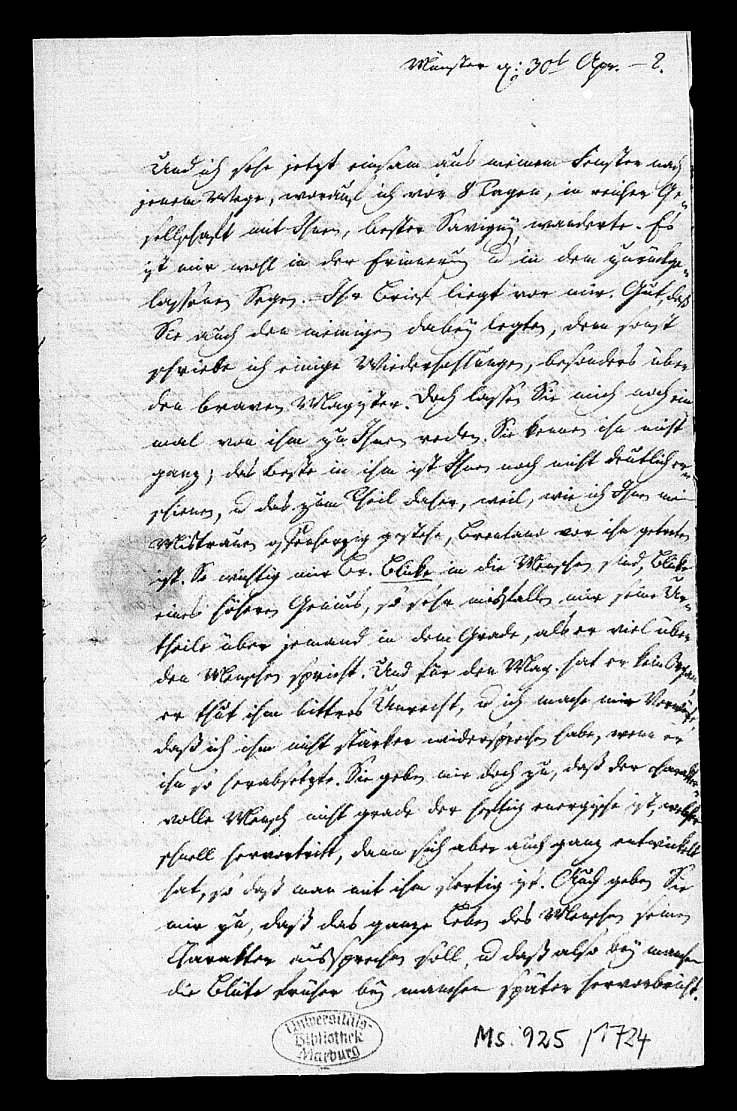 Münster d. 30t Apr. – 2.
Und ich sehe jetzt einsam aus meinem Fenster nach
jenem Wege, worauf ich vor 8 Tagen, in reicher Ge-
sellschaft mit Ihnen, bester Savigny, wanderte. Es
ist mir wohl in der Erinnerung u in dem zurückge-
lassenen Segen. Ihr Brief liegt vor mir. Gut, daß
Sie auch den meinigen dabey legten, denn sonst
schriebe ich einige Wiederhohlungen, besonders über
den braven Magister. Doch lassen Sie mich noch ein
mal von ihm zu Ihnen reden. Sie kennen ihn nicht
ganz; das Beste in ihm ist Ihnen noch nicht deutlich er-
schienen, u das zum Theil daher, weil, wie ich Ihnen mein
Mistrauen offenherzig gestehe, Brentano vor ihn getreten
ist. So wichtig mir Br. Blicke in die Menschen sind, Blicke
eines höhern Genius, so sehr misfallen mir seine Ur-
theile über jemand in dem Grade, als er viel über
den Menschen spricht. Und für den Mag. hat er kein Organ,
er thut ihm bittres Unrecht, u ich mache mir Vorwürfe,
daß ich ihm nicht stärker widersprochen habe, wenn er
ihn so herabsetzte. Sie geben mir doch zu, daß der charakter-
volle Mensch nicht grade der heftig energische ist, welcher
schnell hervortritt, dann sich aber auch ganz entwickelt
hat, so daß man mit ihm fertig ist. Auch geben Sie
mir zu, daß das ganze Leben des Menschen seinen
Charakter aussprechen soll, u daß also bey manchen
die Blüte früher bey manchen später hervorbricht.
Universitäts-
Bibliothek
Marburg
Ms. 925 / 1724